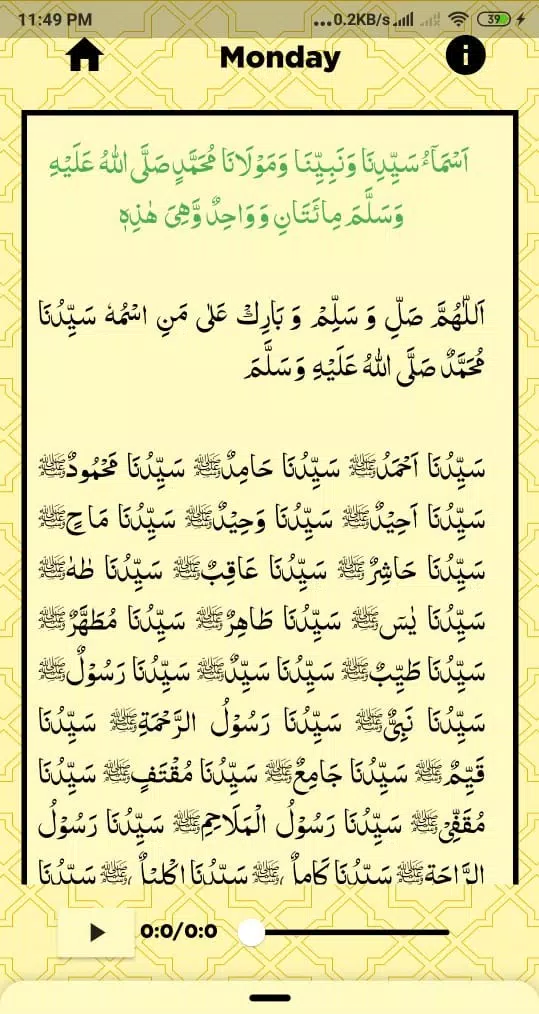 11:49 PM ...0.2KB/s 39
Monday
اَسْمَآءُ سَيِّدِنَا وَنَبِيِّنَا وَمَوْلَانَا مُحَمَّدٍ صَلَّى اللهُ عَلَيْهِ
وَسَلَّمَ مِائَتَانِ وَوَاحِدٌ وَّهِىَ هٰذِهٖ
اَللّٰهُمَّ صَلِّ وَ سَلِّمْ وَ بَارِكْ عَلٰى مَنِ اسْمُهٗ سَيِّدُنَا
مُحَمَّدٌ صَلَّى اللهُ عَلَيْهِ وَسَلَّمَ
سَيِّدُنَا اَحْمَدُ ﷺ سَيِّدُنَا حَامِدٌ ﷺ سَيِّدُنَا مَحْمُودٌ ﷺ
سَيِّدُنَا اَحِيْدٌ ﷺ سَيِّدُنَا وَحِيْدٌ ﷺ سَيِّدُنَا مَاحٍ ﷺ
سَيِّدُنَا حَاشِرٌ ﷺ سَيِّدُنَا عَاقِبٌ ﷺ سَيِّدُنَا طٰهٰ ﷺ
سَيِّدُنَا يٰسٓ ﷺ سَيِّدُنَا طَاهِرٌ ﷺ سَيِّدُنَا مُطَهَّرٌ ﷺ
سَيِّدُنَا طَيِّبٌ ﷺ سَيِّدُنَا سَيِّدٌ ﷺ سَيِّدُنَا رَسُوْلٌ ﷺ
سَيِّدُنَا نَبِىٌّ ﷺ سَيِّدُنَا رَسُوْلُ الرَّحْمَةِ ﷺ سَيِّدُنَا
قَيِّمٌ ﷺ سَيِّدُنَا جَامِعٌ ﷺ سَيِّدُنَا مُقْتَفٍ ﷺ سَيِّدُنَا
مُقَفِّىْ ﷺ سَيِّدُنَا رَسُوْلُ الْمَلَاحِمِ ﷺ سَيِّدُنَا رَسُوْلُ
الرَّاحَةِ ﷺ سَيِّدُنَا كَامِلٌ ﷺ سَيِّدُنَا اِكْلِيْلٌ ﷺ سَيِّدُنَا
0:0/0:0